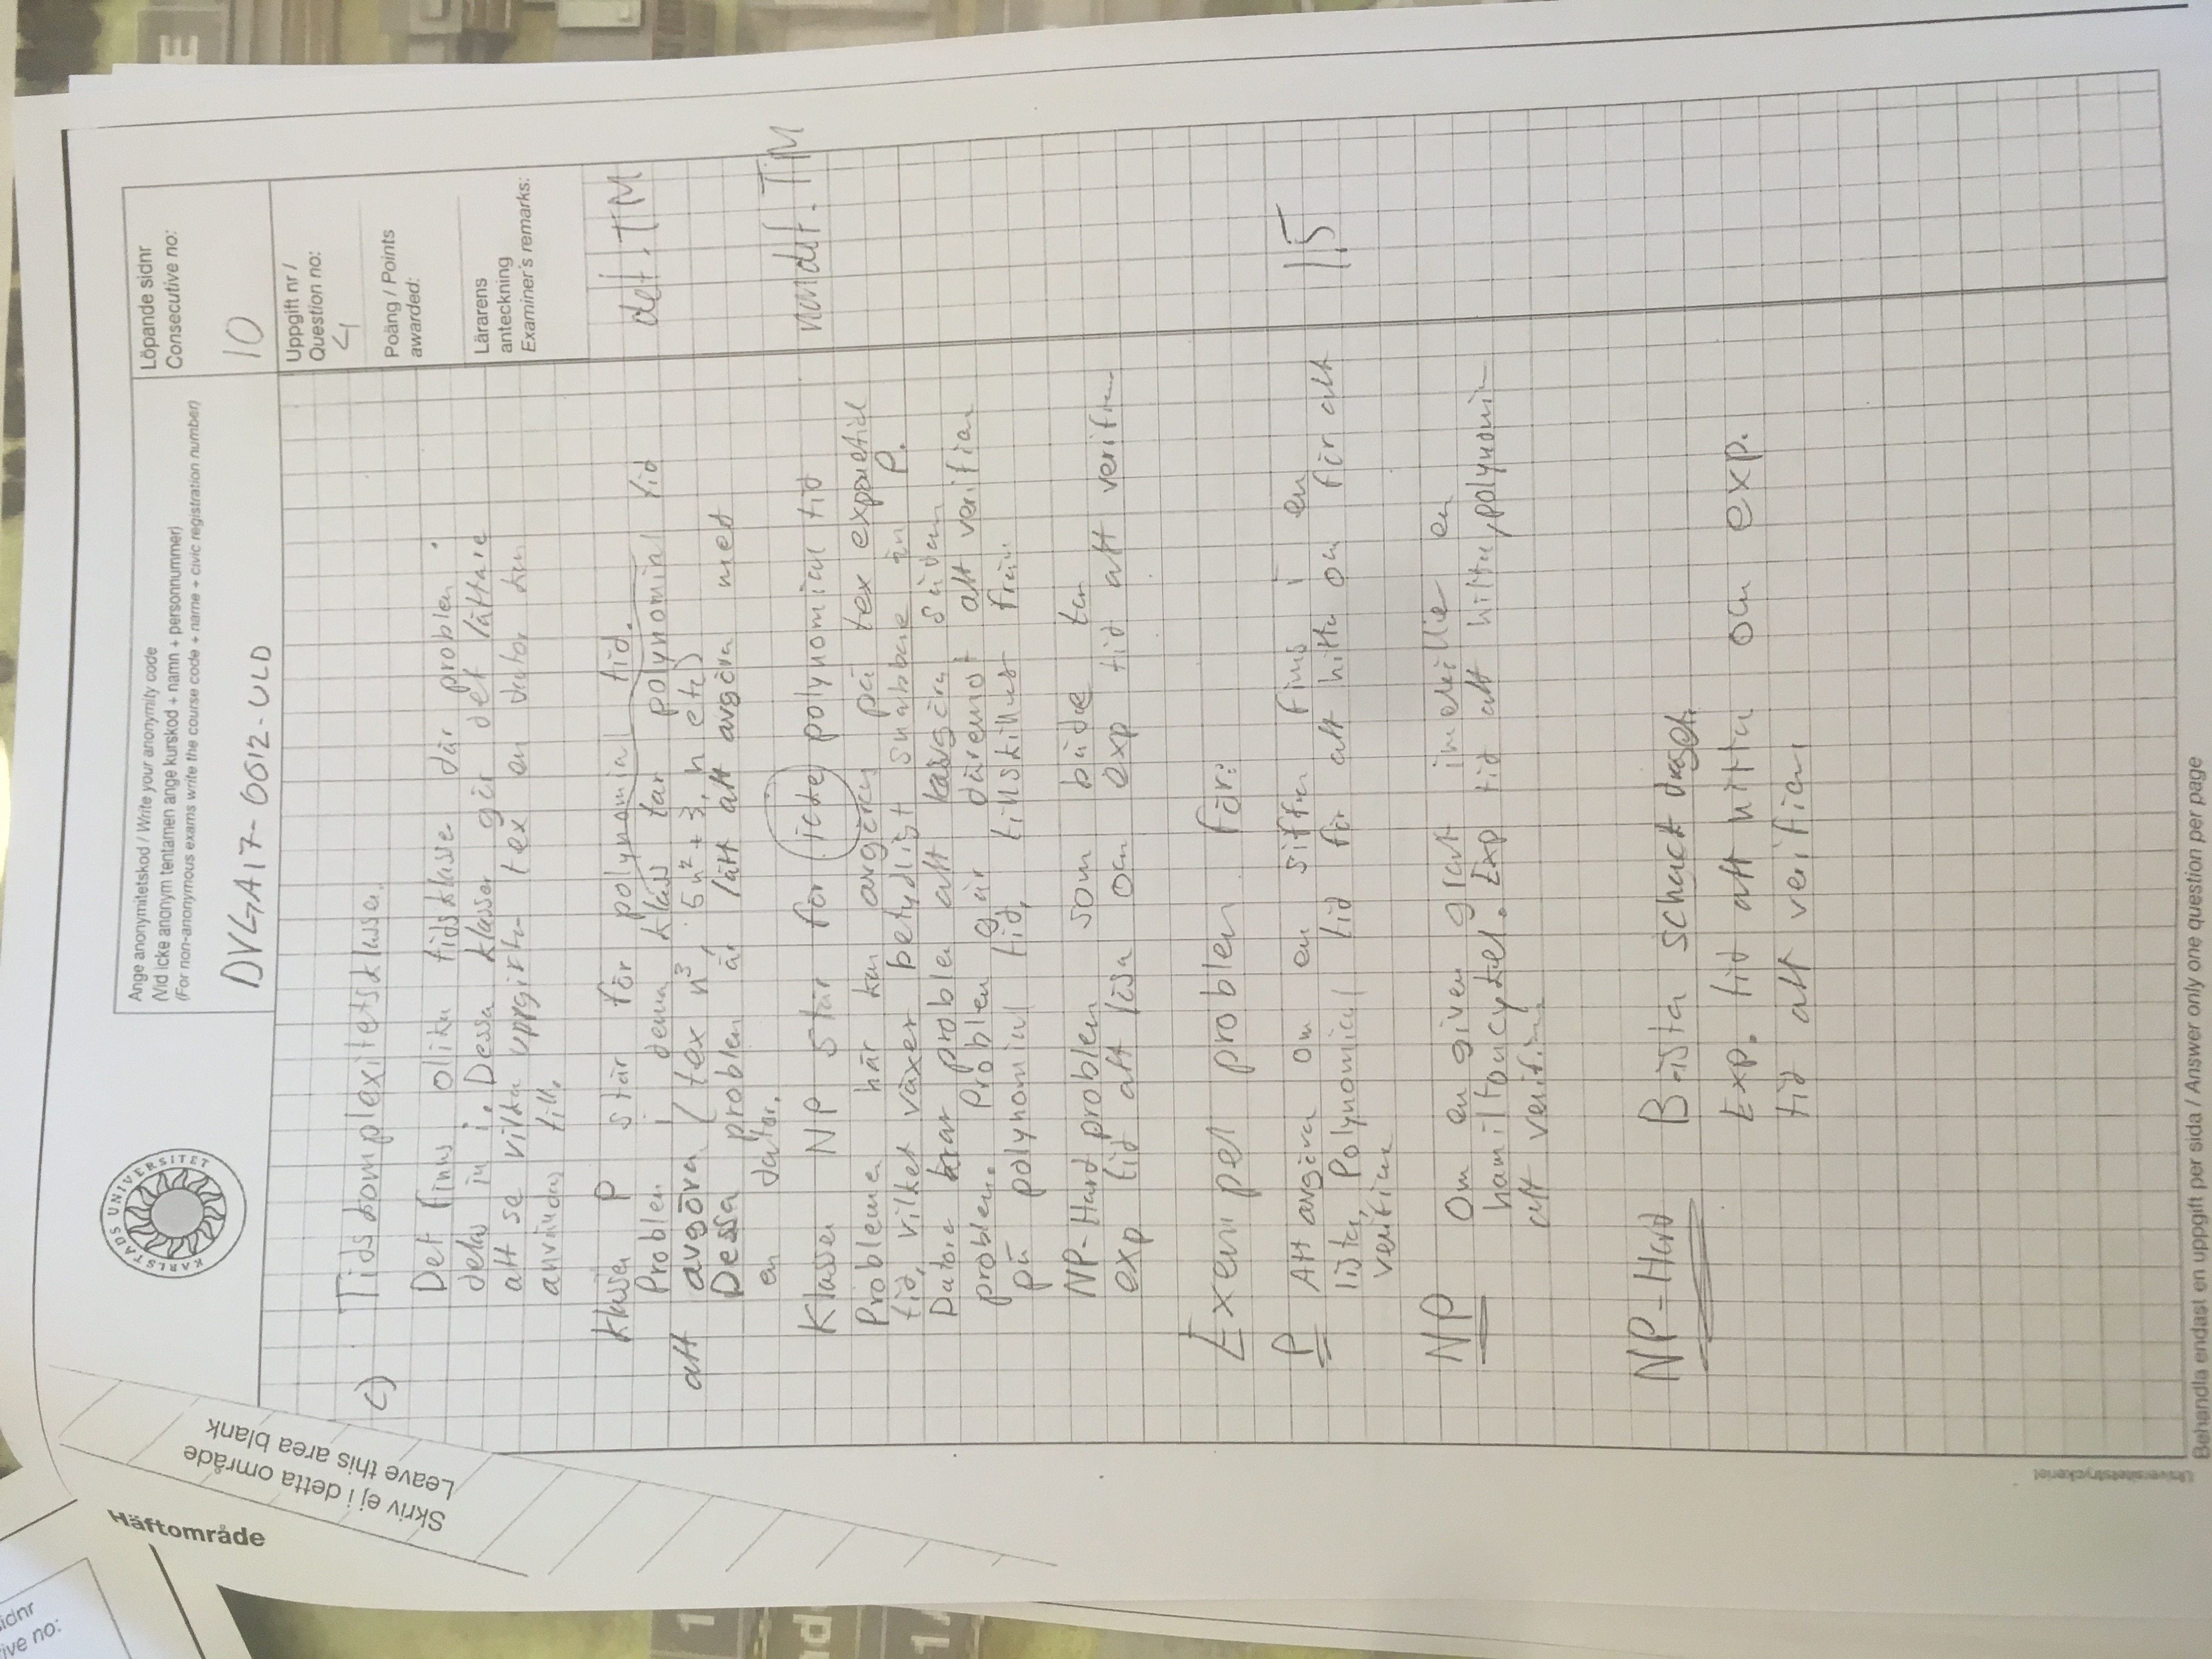 sidnr
ive no:
Häftområde
Skriv ej i detta område
Leave this area blank
KARLSTADS UNIVERSITET
Ange anonymitetskod / Write your anonymity code
(Vid icke anonym tentamen ange kurskod + namn + personnummer)
(For non-anonymous exams write the course code + name + civic registration number)
DVGA17-0012-ULD
Löpande sidnr
Consecutive no:
10
Uppgift nr /
Question no:
4
Poäng / Points
awarded:
Lärarens
anteckning
Examiner's remarks:
c) Tidskomplexitetsklasser
Det finns olika tidsklasser där problem
delas in i. Dessa klasser gör det lättare
att se vilka uppgifter tex en dator kan
användas till.
Klassen P står för polynomial tid.
det. TM
Problem i denna klass tar polynomial tid
att avgöra (tex n³, 5n²+3, n etc)
Dessa problem är lätt att avgöra med
en dator.
Klassen NP står för icke polynomial tid
nondet. TM
Problemen här kan avgöras på tex exponetiell
tid, vilket växer betydligt snabbare än P.
Datorer har problem att avgöra sådana
problem. Problem går däremot att verifiera
på polynomial tid, tillskillnad från
NP-Hard problem som både tar
exp tid att lösa och exp tid att verifiera
Exempel problem för:
P Att avgöra om en siffra finns i en
lista, Polynomial tid för att hitta och för att
verifiera
1,5
NP Om en given graf innehåller en
hamiltoncykel. Exp tid att hitta, polynomi
att verifiera
NP-Hard Bästa schack draget.
Exp. tid att hitta och exp.
tid att verifiera
Universitetstryckeriet
Behandla endast en uppgift per sida / Answer only one question per page